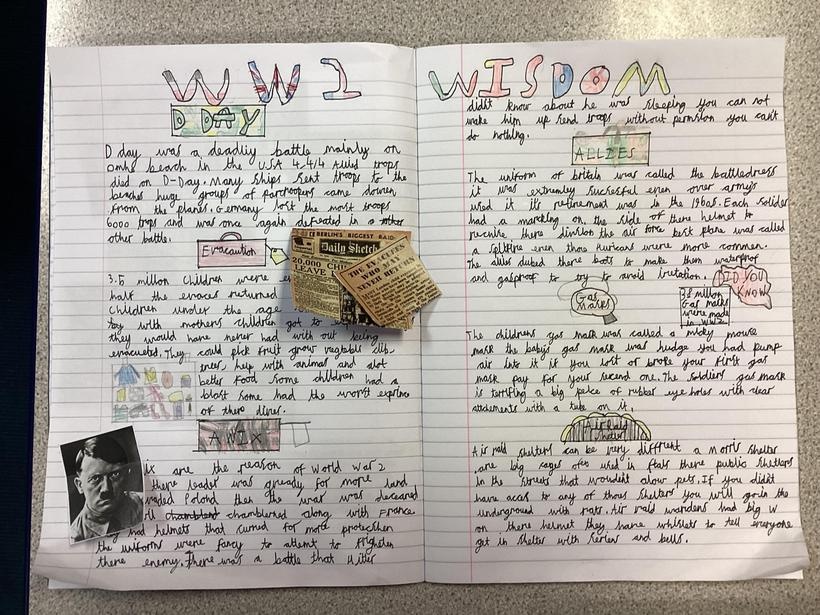 WW2 WISDOM
D DAY
D day was a deadliy battle mainly on
beach in the USA 4,414 troops
died on D-Day. Many ships sent troops to the
beaches huge groups of came down
from the planes. Germany lost the most troops
6000 trops and was once again defeated in a
other battle.
Evacaution
3.5 million children were
half the evaces returned
Children under the age
toy with mothers children got to
they would have never had with out being
evacuated. They could pick fruit grow vegtable
help with animal and alot
better food some children had a
blast some had the worst
of there lives.
BERLIN'S BIGGEST RAID
Daily Sketch
20,000
LEAVE
THE
WHO MAY
NEVER RETURN
are the reason of World War 2
there leader was already for more land
Poland then the war was
along with France
had helmets that curved for more
the uniforms were fancy to attemt to frighten
there enemy. There was a battle that Hitler
didn't know about he was sleeping you can not
wake him up send troops without permsion you can't
do nothing.
ALLIES
The uniform of Britain was called the battledress
it was extremly sucsesful even over army's
used it it's retirement was in the 1960s. Each solider
had a marking on the side of there helmet to
there the air fore best plane was called
a spitfire even thoe were more common.
The allies there boots to make them waterproof
and gasproof to try to avoid
DID YOU
KNOW
Gas
Masks
38 million
Gas masks
were made
in WW2
The childrens gas mask was called a micky mouse
mask the baby's gas mask was hudge you had pump
air into it if you lost or broke your first gas
mask pay for your second one. The soldiers gas mask
is a big peice of rubber eye holes with clear
with a tube on it.
Air Raid
Shelters
Air raid shelters can be very diffrent a morris shelter
are big cages often used in flats there public shelters
in the streets that wouldent alow pets. If you did't
have acces to any of those shelters you will go in the
underground with rats. Air raid wardens had big W
on there helmet they have to tell everyone
get in shelter with and bells.